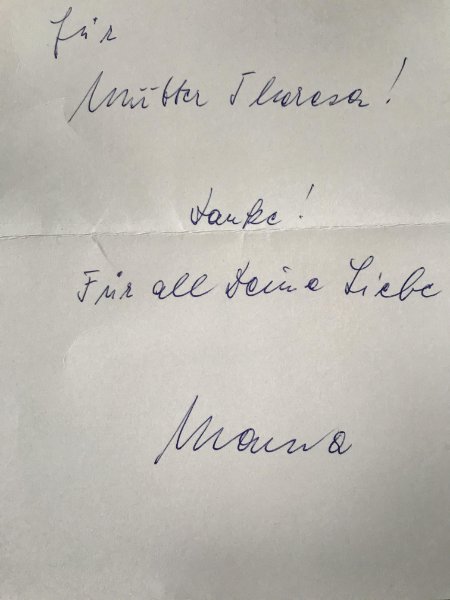 für
Mutter Theresa!
Danke!
Für all Deine Liebe
Mama